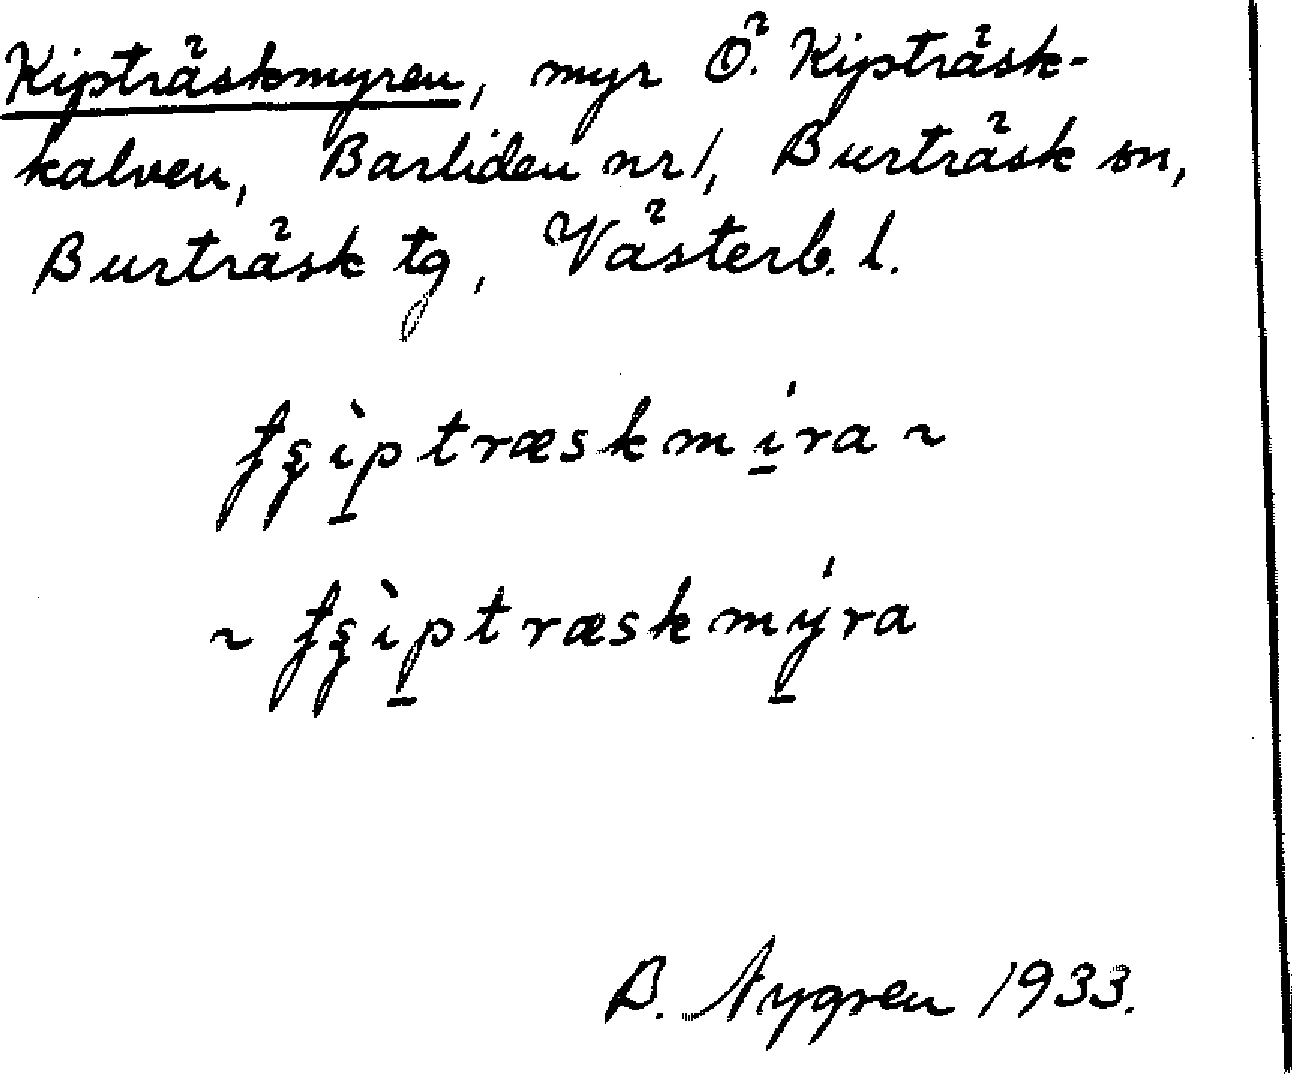 Kipträskmyren, myr Ö. Kipträsk-
kalven, Barliden nr 1, Burträsk sn,
Burträsk tg, Västerb. l.
ʄʂìp̱træskmí̱ra ~
~ ʄʂìp̱træskmý̱ra
B. Nygren 1933.